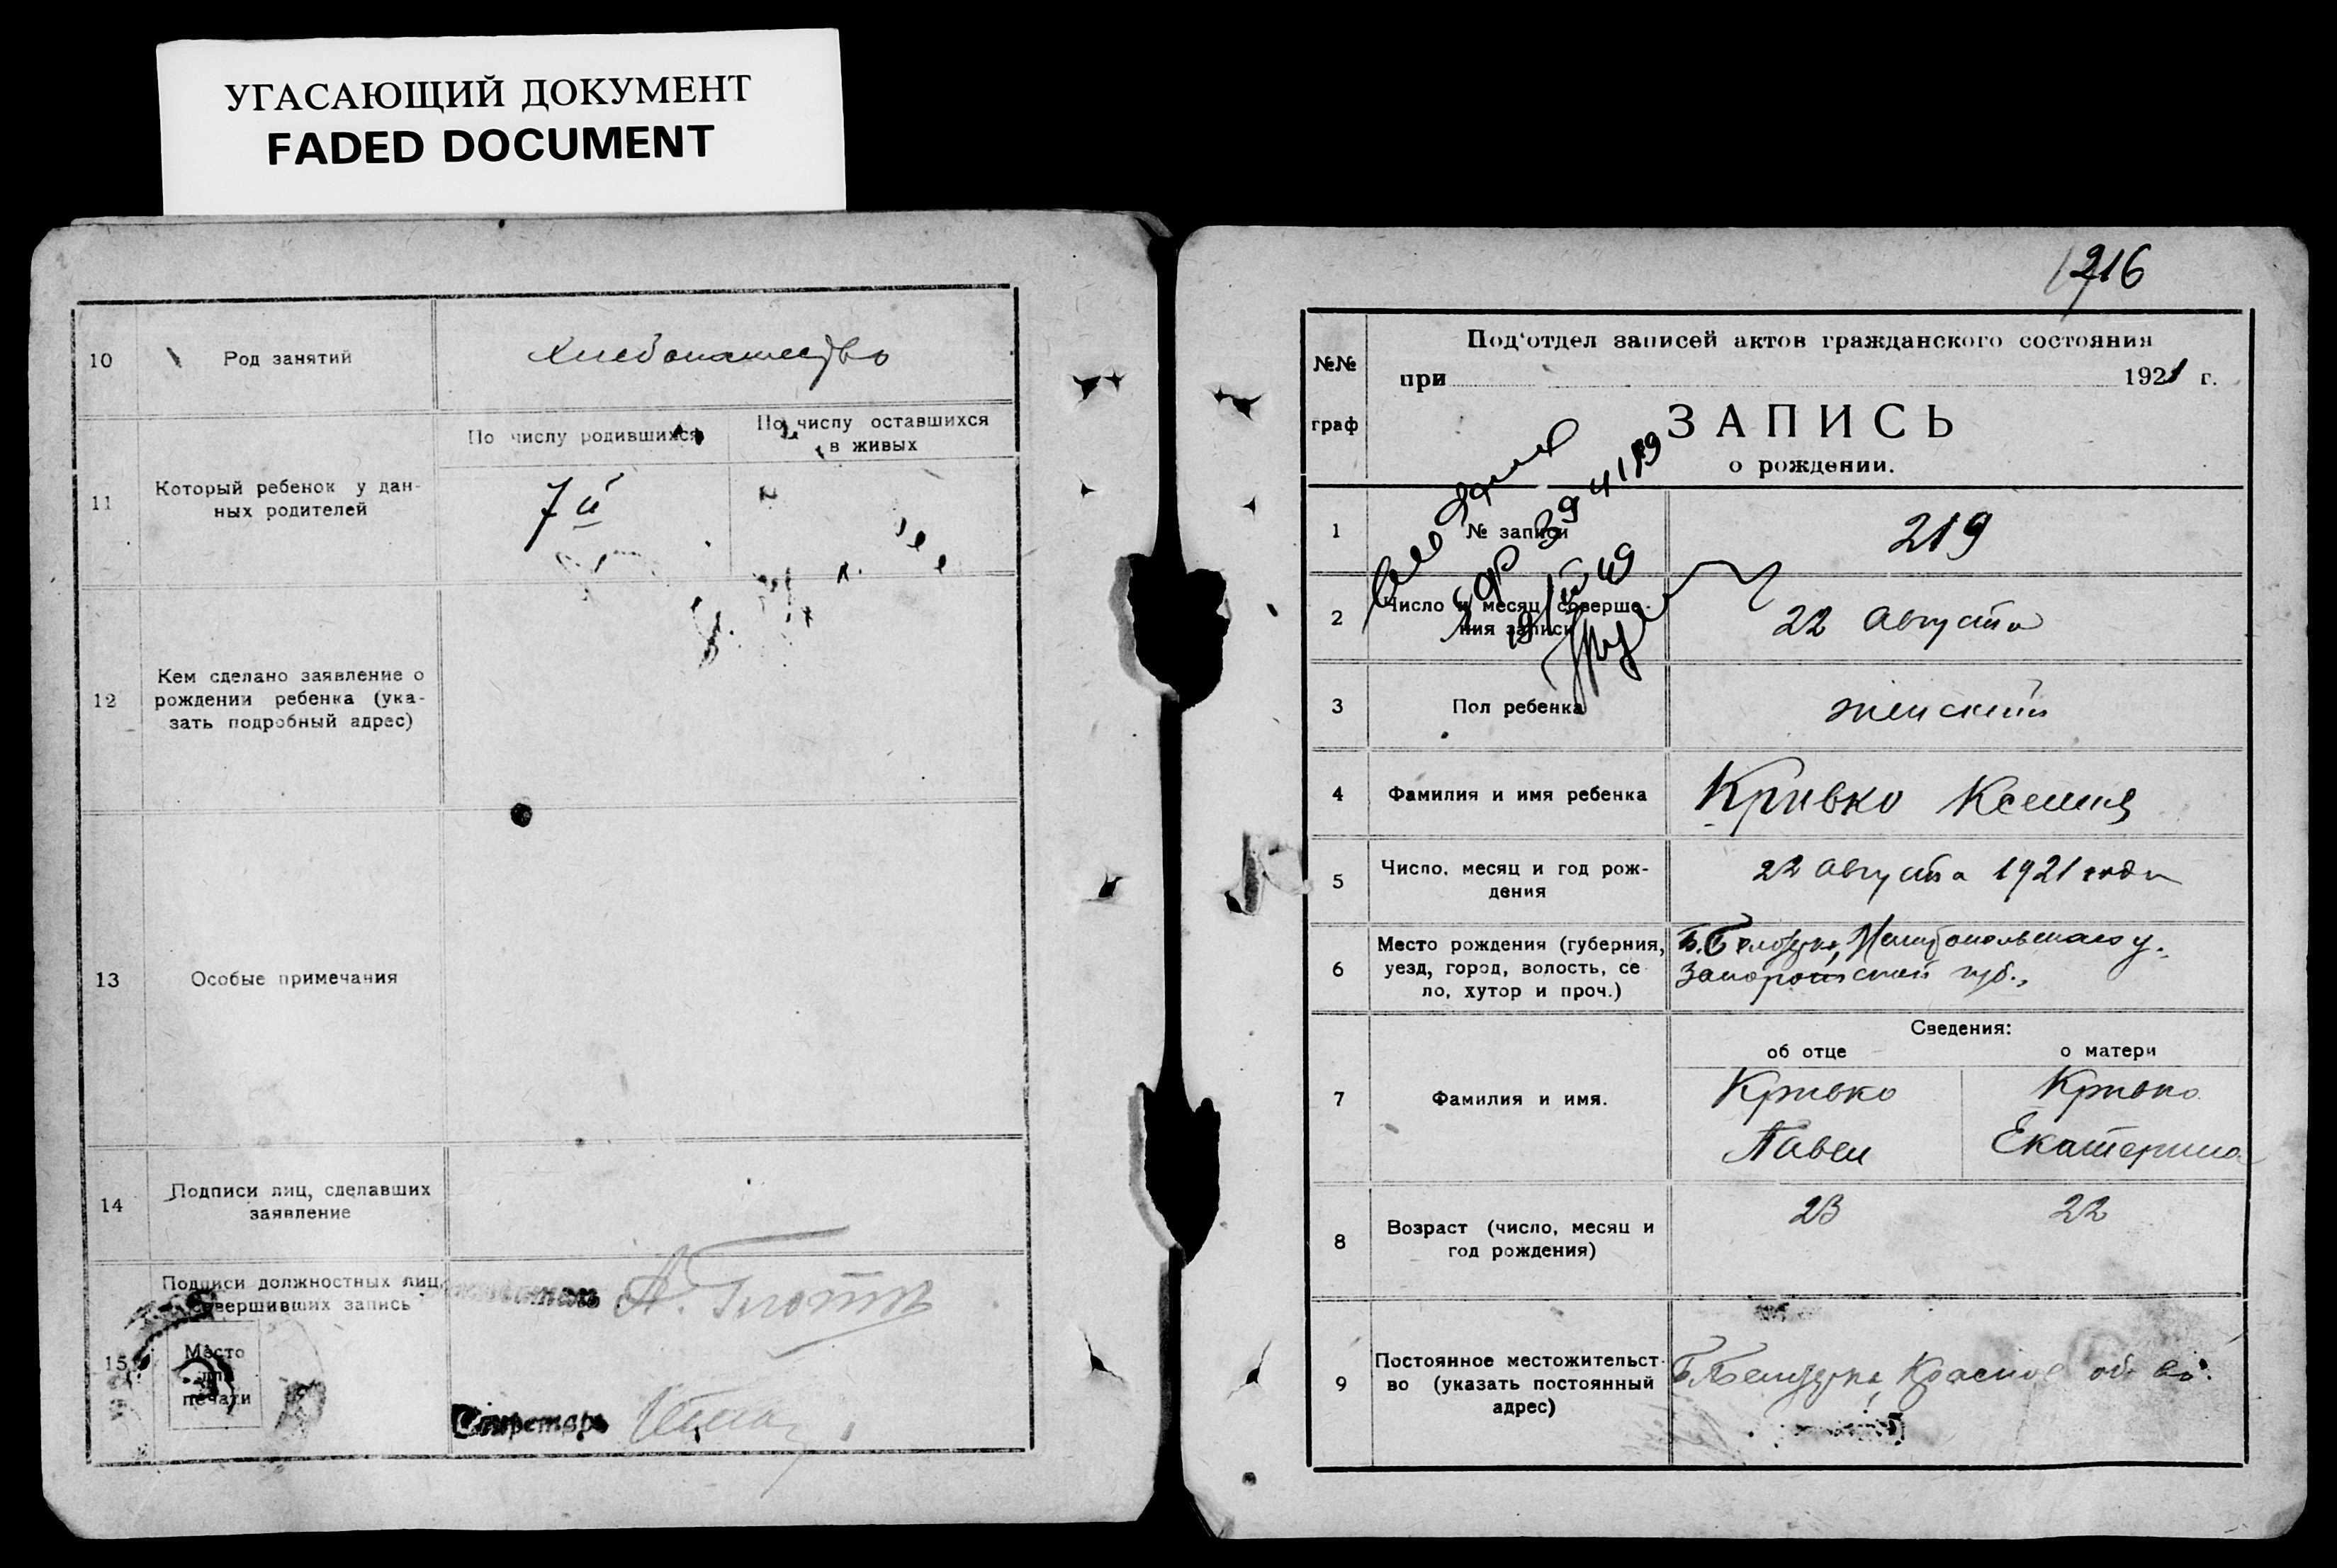 УГАСАЮЩИЙ ДОКУМЕНТ
FADED DOCUMENT
10
Род занятий
Хлебопашество
11
Который ребенок у дан-
ных родителей
По числу родившихся
По числу оставшихся
в живых
7й
12
Кем сделано заявление о
рождении ребенка (ука-
зать подробный адрес)
13
Особые примечания
14
Подписи лиц, сделавших
заявление
15
Подписи должностных лиц,
совершивших запись
Место
для
печати
А.
Секретарь
216
№№
граф
Под'отдел записей актов гражданского состояния
при 1921 г.
ЗАПИСЬ
о рождении.
1
№ записи
219
2
Число и месяц соверше-
ния записи
22 Августа
3
Пол ребенка
женский
4
Фамилия и имя ребенка
Кривко Ксения
5
Число, месяц и год рож-
дения
22 Августа 1921 года
6
Место рождения (губерния,
уезд, город, волость, се
ло, хутор и проч.)
Б. Белозерка, Мелитопольского у.
Запорожской губ.,
Сведения:
об отце
о матери
7
Фамилия и имя.
Кривко
Павел
Кривко
Екатерина
8
Возраст (число, месяц и
год рождения)
23
22
9
Постоянное местожительст-
во (указать постоянный
адрес)
Б. Белозерка, об-во.